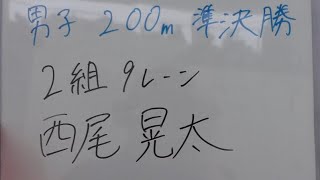 男子 200m 準決勝
2組 9レーン
西尾 晃太